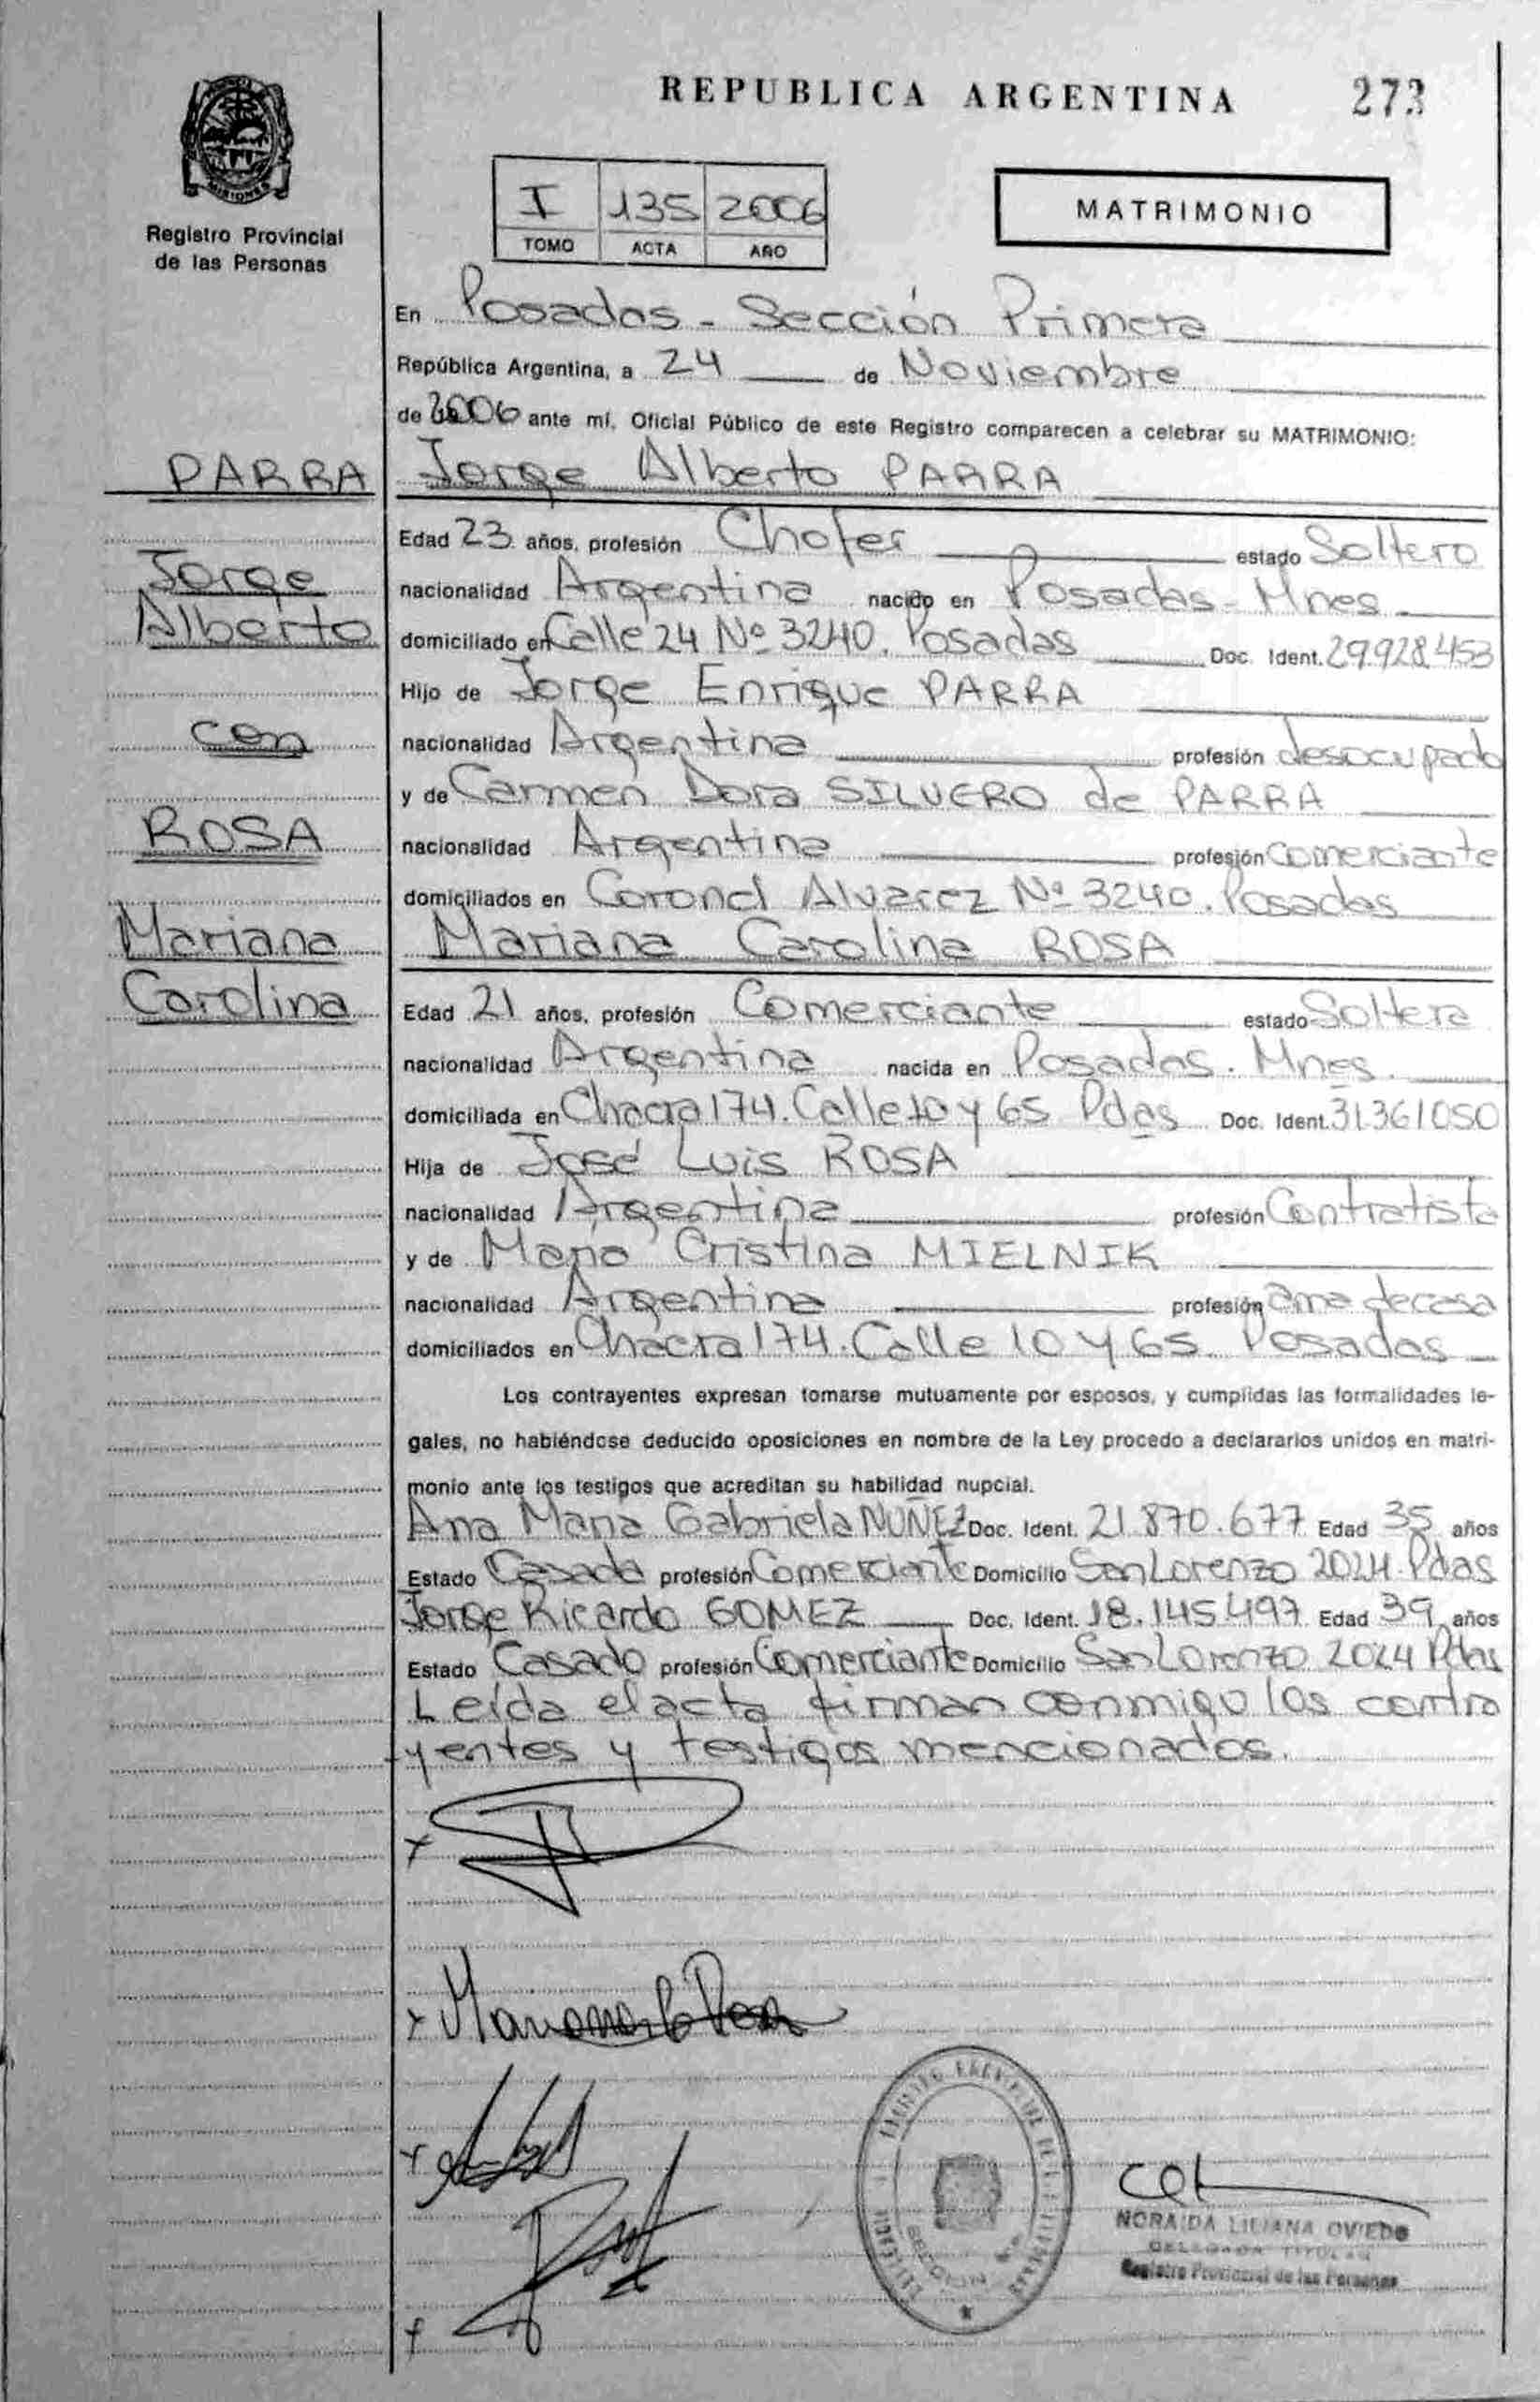 REPUBLICA ARGENTINA
273
MISIONES
Registro Provincial
de las Personas
I 135 2006
TOMO ACTA AÑO
MATRIMONIO
En Posadas - Sección Primera
República Argentina, a 24 de Noviembre
de 2006 ante mí, Oficial Público de este Registro comparecen a celebrar su MATRIMONIO:
PARRA
Jorge
Alberto
con
ROSA
Mariana
Carolina
Jorge Alberto PARRA
Edad 23 años, profesión Chofer estado Soltero
nacionalidad Argentina nacido en Posadas - Mnes
domiciliado en Calle 24 Nº 3240. Posadas Doc. Ident. 29.928.453
Hijo de Jorge Enrique PARRA
nacionalidad Argentina profesión desocupado
y de Carmen Dora SILVERO de PARRA
nacionalidad Argentina profesión Comerciante
domiciliados en Coronel Alvarez Nº 3240. Posadas
Mariana Carolina ROSA
Edad 21 años, profesión Comerciante estado Soltera
nacionalidad Argentina nacida en Posadas. Mnes.
domiciliada en Chacra 174. Calle 10 y 65 Pdas Doc. Ident. 31.361050
Hija de José Luis ROSA
nacionalidad Argentina profesión Contratista
y de María Cristina MIELNIK
nacionalidad Argentina profesión ama de casa
domiciliados en Chacra 174. Calle 10 y 65. Posadas
Los contrayentes expresan tomarse mutuamente por esposos, y cumplidas las formalidades le-
gales, no habiéndose deducido oposiciones en nombre de la Ley procedo a declararlos unidos en matri-
monio ante los testigos que acreditan su habilidad nupcial.
Ana Maria Gabriela NUÑEZ Doc. Ident. 21.870.677 Edad 35 años
Estado Casada profesión Comerciante Domicilio San Lorenzo 2024. Pdas
Jorge Ricardo GOMEZ Doc. Ident. 18.145.497 Edad 39 años
Estado Casado profesión Comerciante Domicilio San Lorenzo 2024 Pdas
Leída el acta firman conmigo los contra
yentes y testigos mencionados.
NORAIDA LILIANA OVIEDO
DELEGADA TITULAR
Registro Provincial de las Personas